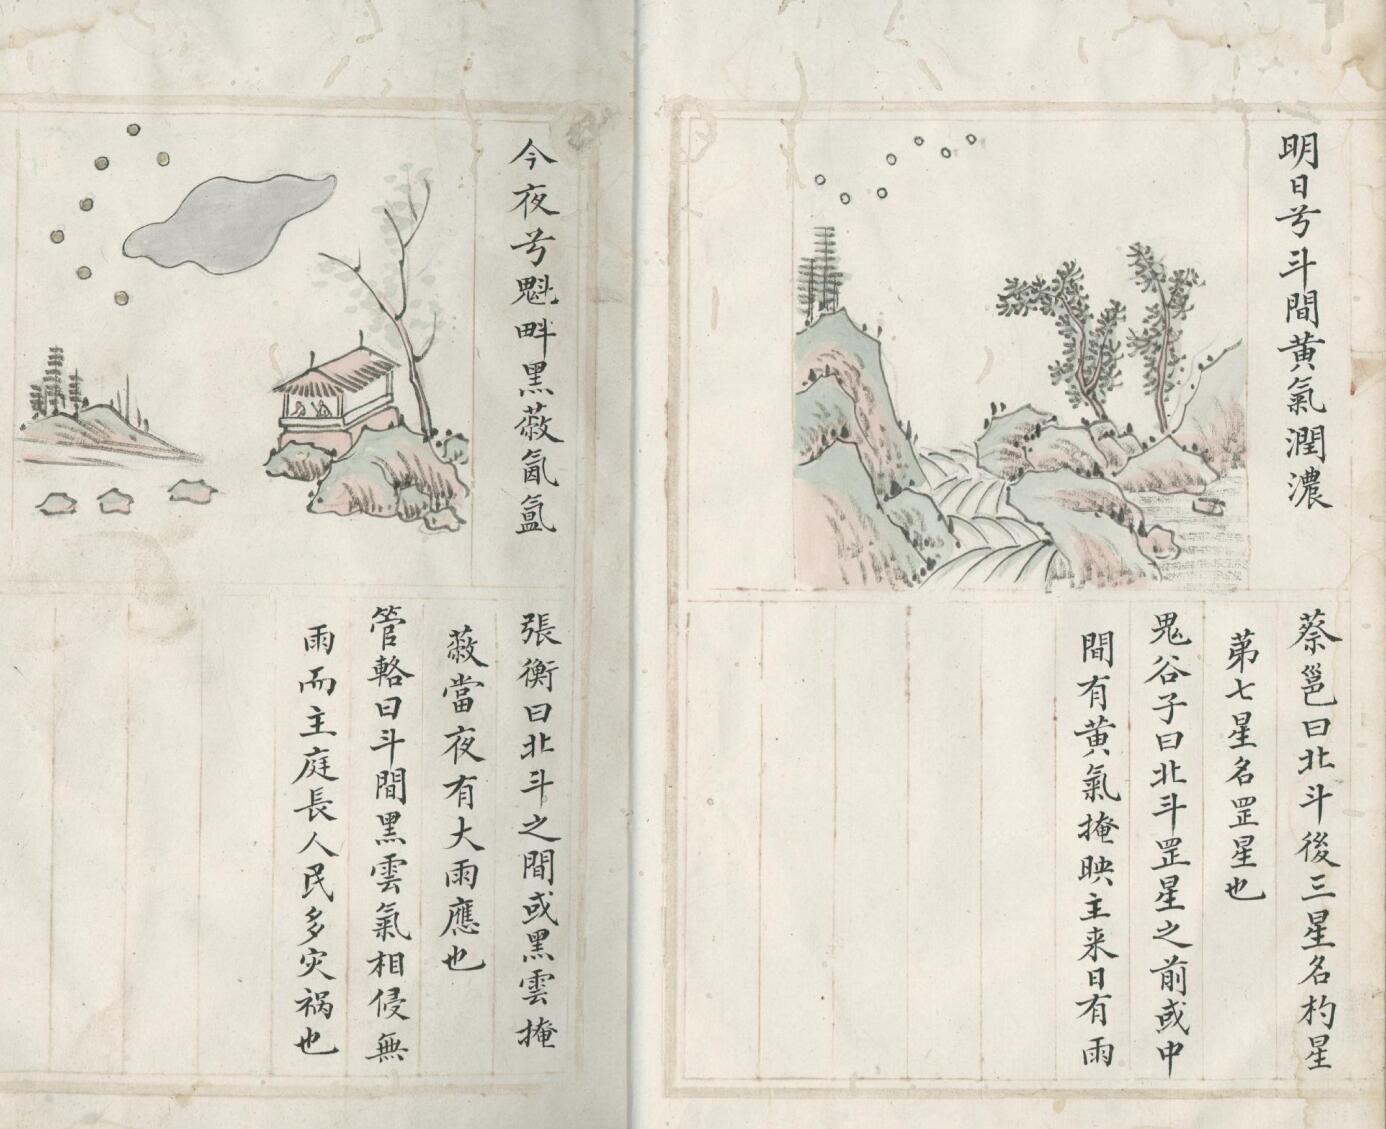 明日兮斗間黃氣潤濃
蔡邕曰北斗後三星名杓星
第七星名罡星也
鬼谷子曰北斗罡星之前或中
間有黃氣掩映主来日有雨
今夜兮魁畔黑蔽氤氳
張衡曰北斗之間或黑雲掩
蔽當夜有大雨應也
管輅曰斗間黑雲氣相侵無
雨而主庭長人民多灾禍也